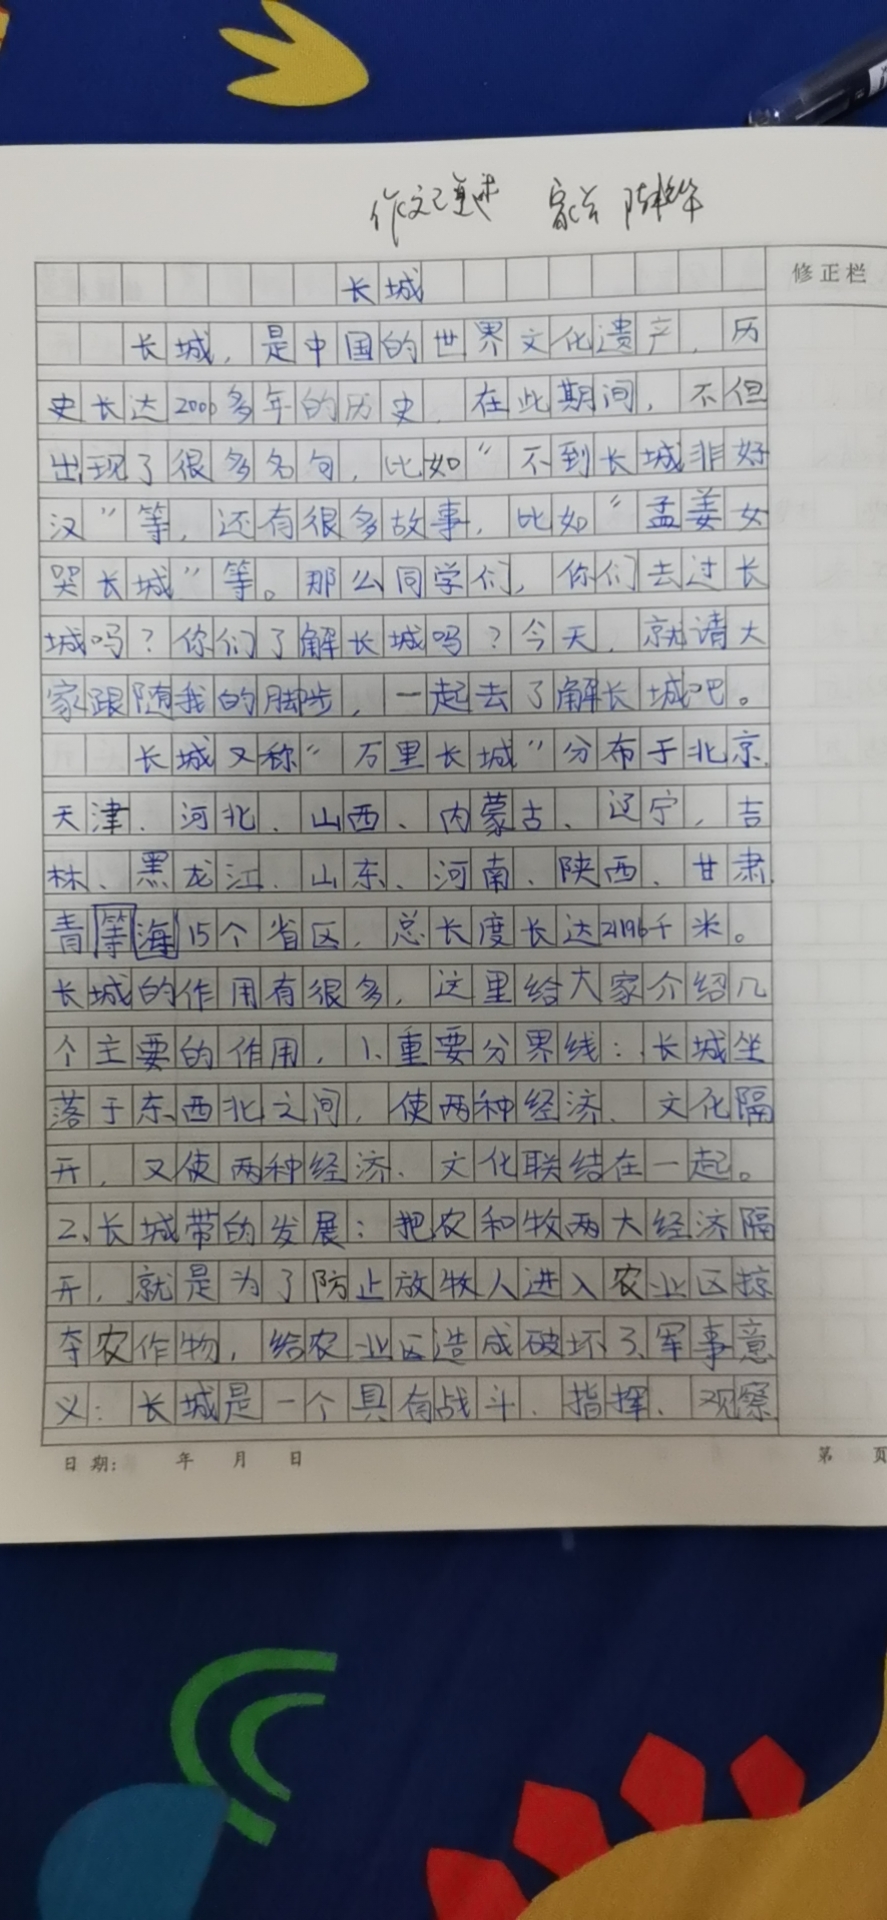 作文已复述 家长
修正栏
长城
长城，是中国的世界文化遗产，历
史长达2000多年的历史，在此期间，不但
出现了很多名句，比如“不到长城非好
汉”等，还有很多故事，比如“孟姜女
哭长城”等。那么同学们，你们去过长
城吗？你们了解长城吗？今天，就请大
家跟随我的脚步，一起去了解长城吧。
长城又称“万里长城”分布于北京、
天津、河北、山西、内蒙古、辽宁，吉
林、黑龙江、山东、河南、陕西、甘肃、
青等海15个省区，总长度长达21196千米。
长城的作用有很多，这里给大家介绍几
个主要的作用，1、重要分界线：长城坐
落于东、西北之间，使两种经济、文化隔
开，又使两种经济、文化联结在一起。
2、长城带的发展：把农和牧两大经济隔
开，就是为了防止放牧人进入农业区掠
夺农作物，给农业区造成破坏3、军事意
义：长城是一个具有战斗、指挥、观察
日期： 年 月 日
第 页